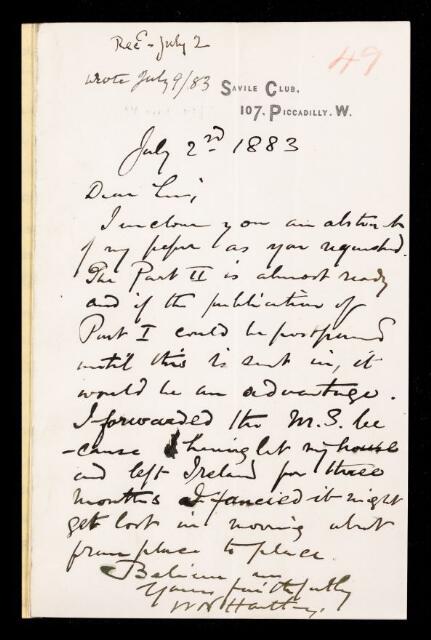 Recd July 2
wrote July 9/83
49
Savile Club,
107, Piccadilly. W.
July 2nd 1883
Dear Sir,
I enclose you an abstract
of my paper as you requested.
The Part II is almost ready
and if the publication of
Part I could be postponed
until this is sent in, it
would be an advantage.
I forwarded the M.S. be
-cause having let my house
and left Ireland for three
months I fancied it might
get lost in moving about
from place to place.
Believe me
Yours faithfully
W N Hartley.